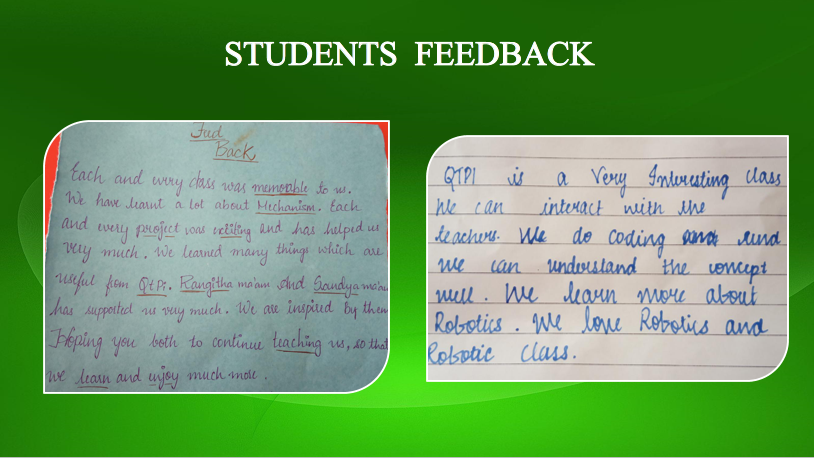 STUDENTS FEEDBACK
Feed
Back
Each and every class was memorable to us.
We have learnt a lot about Mechanism. Each
and every project was exciting and has helped us
very much. We learned many things which are
useful from QtPi. Rangitha ma'am and Sandya ma'am
has supported us very much. We are inspired by them
Hoping you both to continue teaching us, so that
we learn and enjoy much more.
QTPI is a Very Interesting class
We can interact with the
teachers. We do coding and
we can understand the concept
well. We learn more about
Robotics. We love Robotics and
Robotic class.